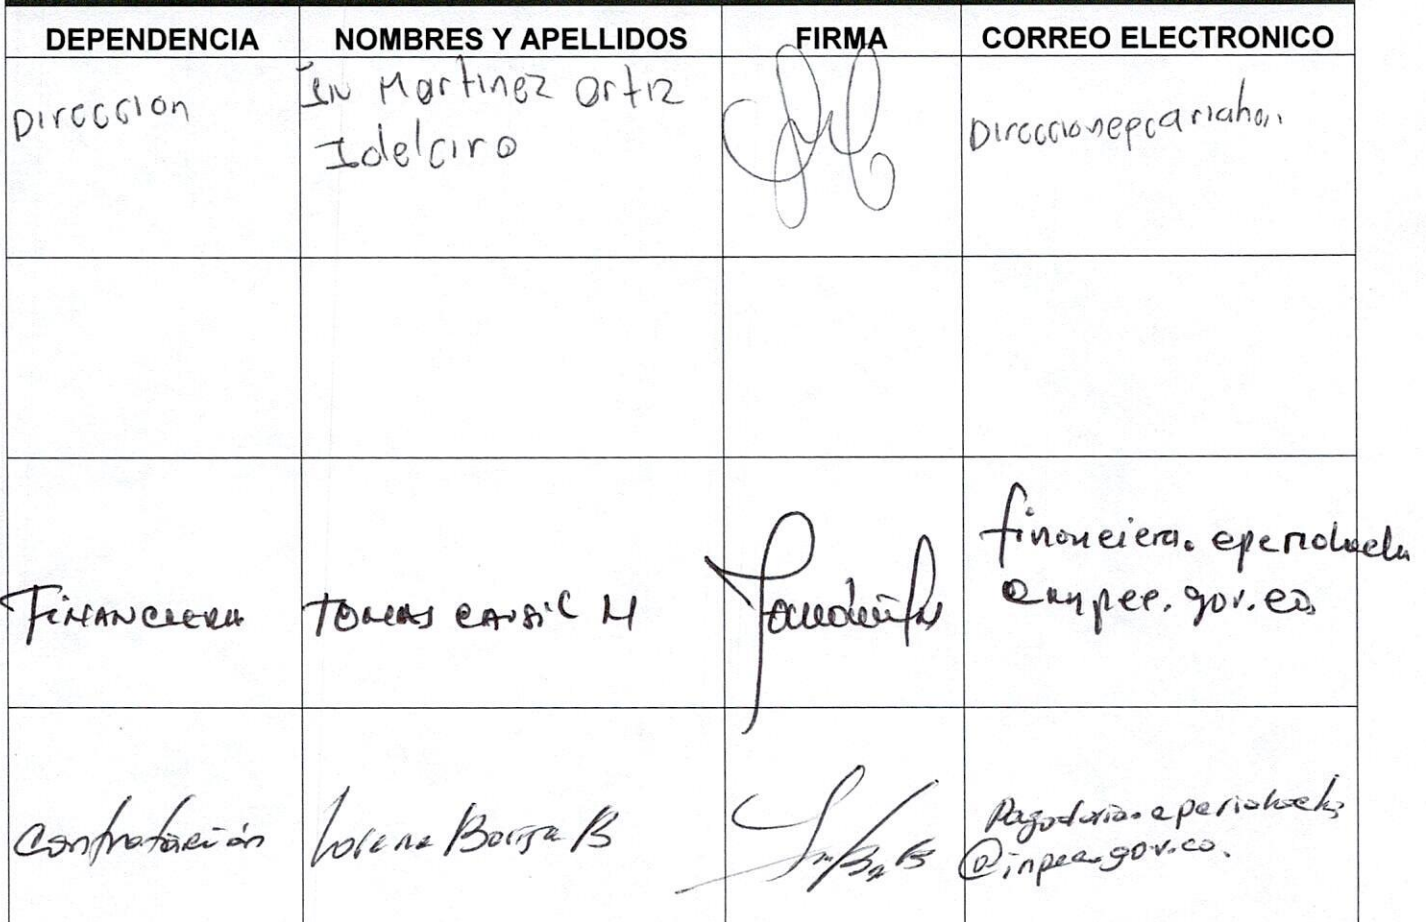 DEPENDENCIA NOMBRES Y APELLIDOS FIRMA CORREO ELECTRONICO
Direccion
IN Martinez Ortiz
Idelciro
Direccionepcarioha
FINANCIERA
TOMAS CAUSIL M
financiera.epcriohacha
@inpec.gov.co
Contratación
Lorena Borja B
Pagaduria.epcriohacha
@inpec.gov.co.